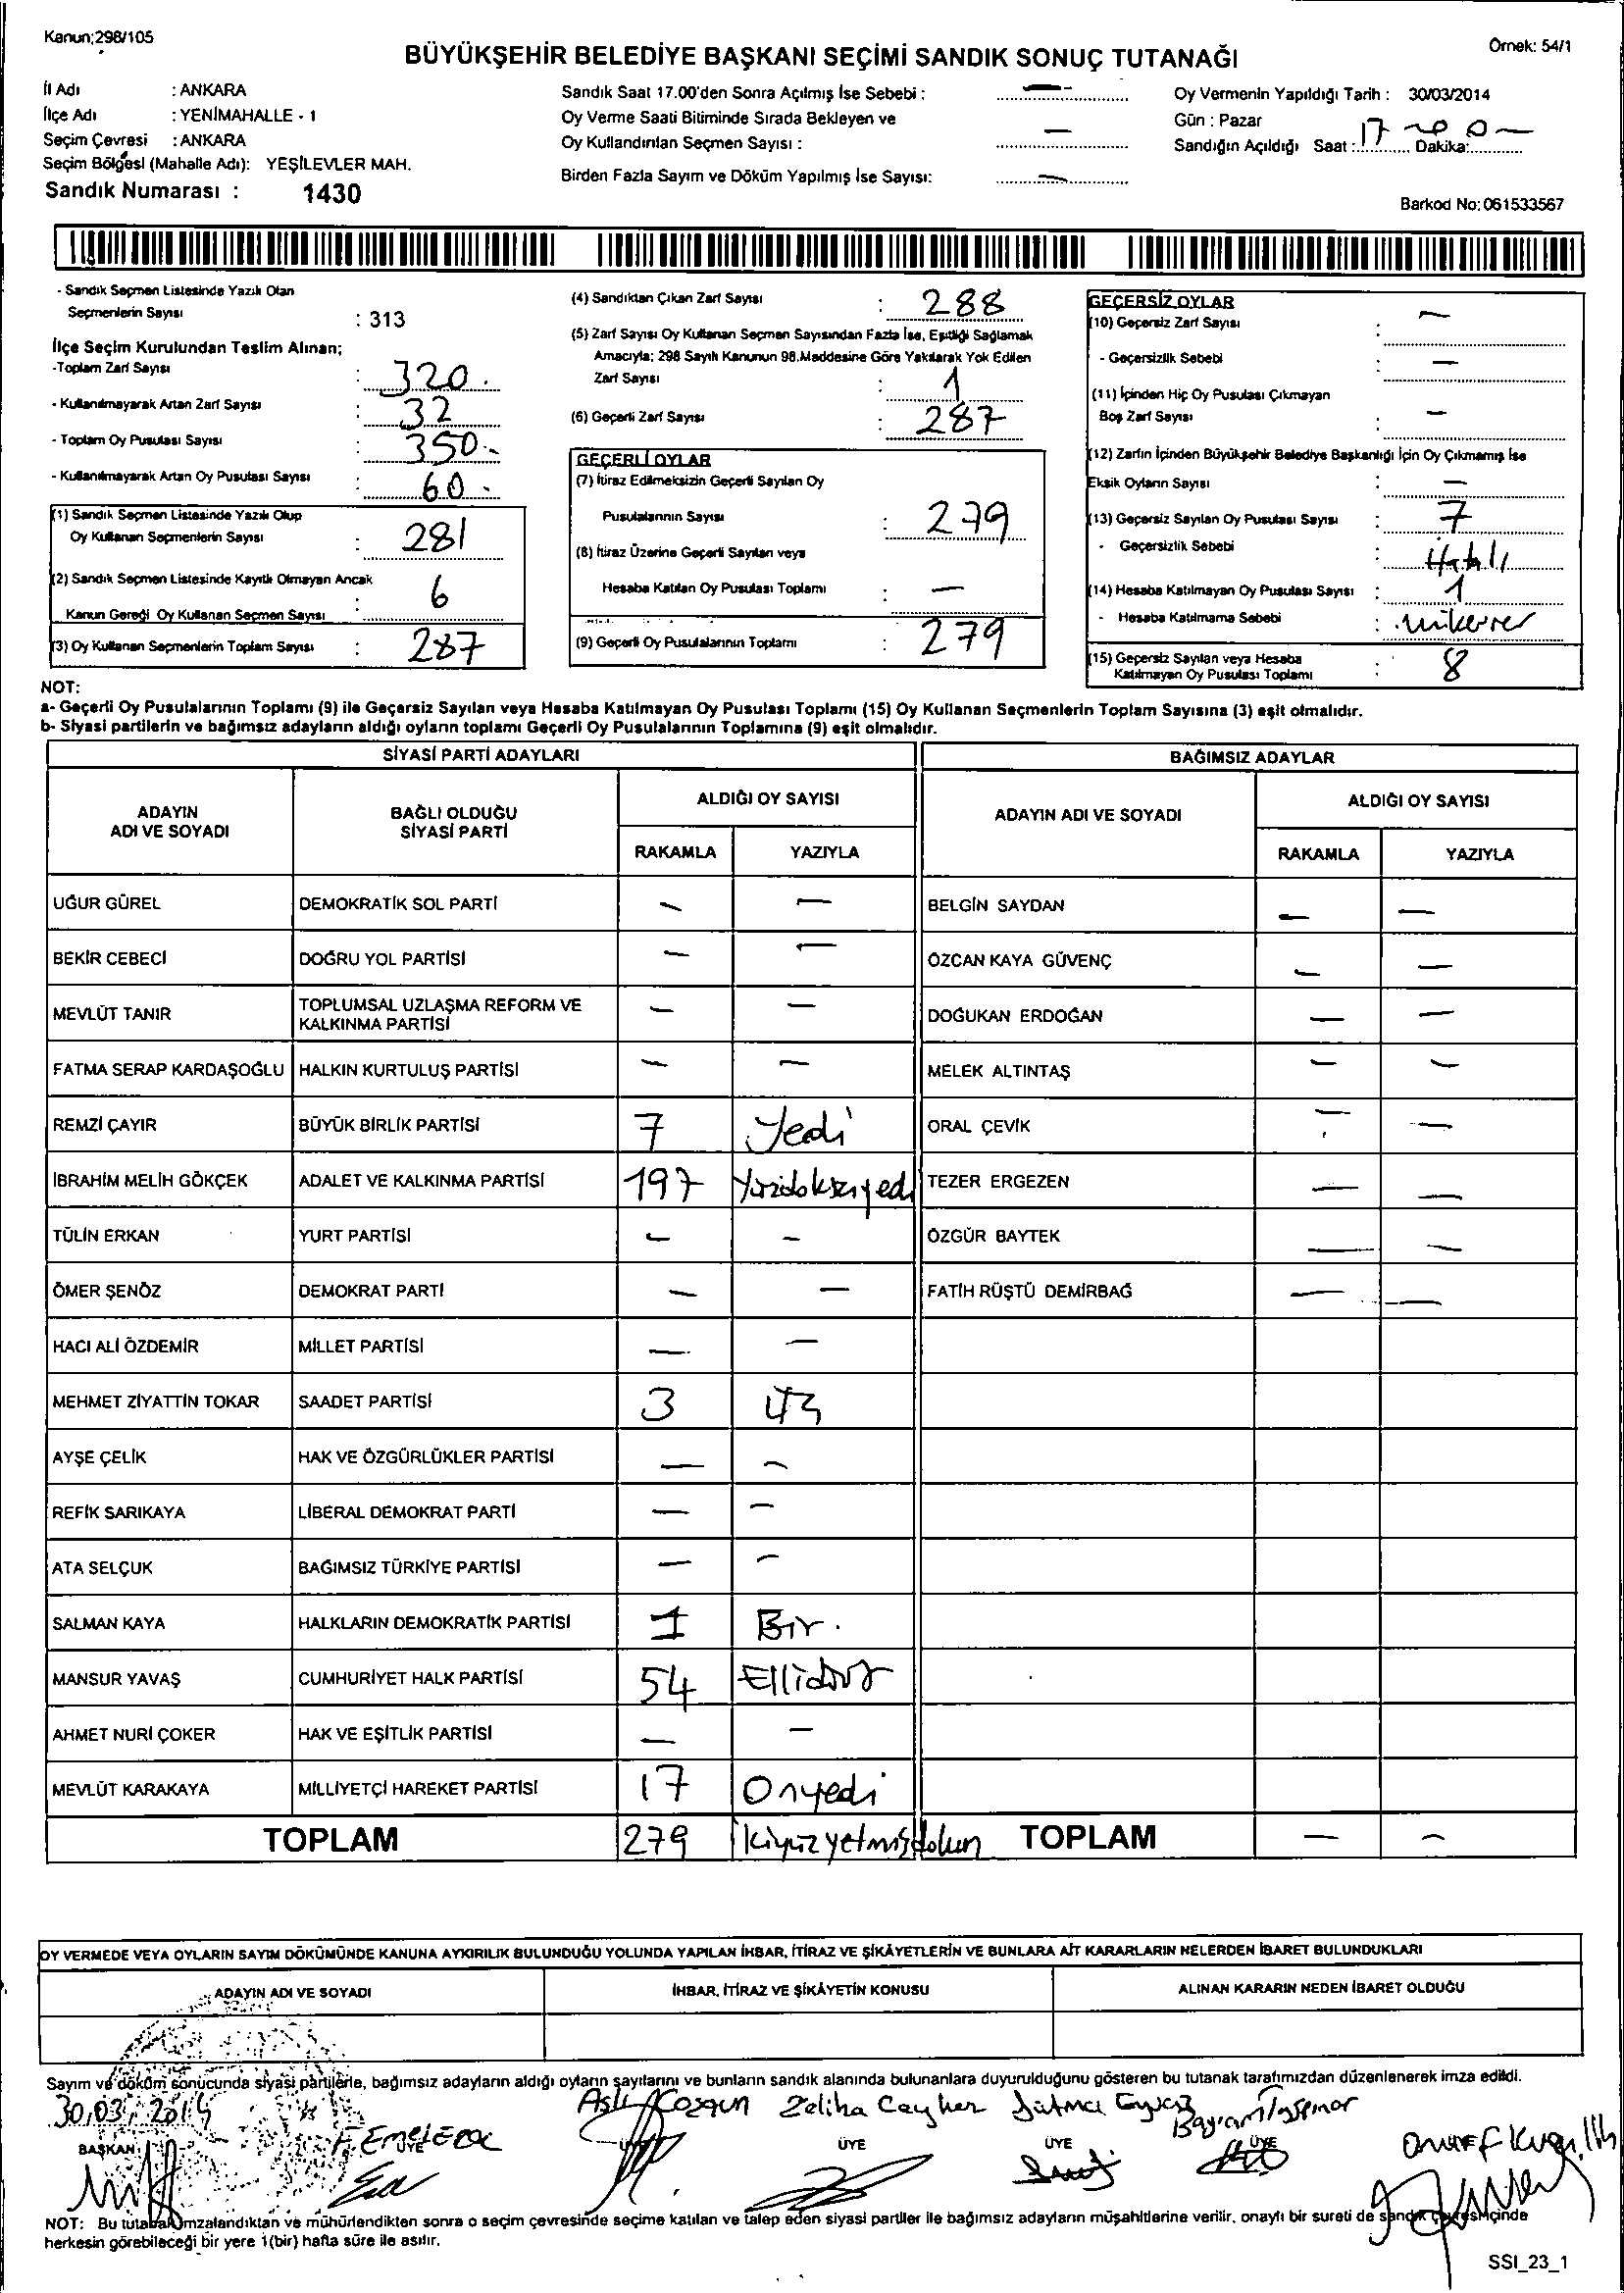 Kanun;298/105
Örnek: 54/1
BÜYÜKŞEHİR BELEDİYE BAŞKANI SEÇİMİ SANDIK SONUÇ TUTANAĞI
İl Adı : ANKARA
İlçe Adı : YENİMAHALLE - 1
Seçim Çevresi : ANKARA
Seçim Bölgesi (Mahalle Adı): YEŞİLEVLER MAH.
Sandık Numarası : 1430
Sandık Saat 17.00'den Sonra Açılmış İse Sebebi : —
Oy Verme Saati Bitiminde Sırada Bekleyen ve
Oy Kullandırılan Seçmen Sayısı : —
Birden Fazla Sayım ve Döküm Yapılmış İse Sayısı: —
Oy Vermenin Yapıldığı Tarih : 30/03/2014
Gün : Pazar
Sandığın Açıldığı Saat : 17 Dakika:
Barkod No: 061533567
- Sandık Seçmen Listesinde Yazılı Olan
Seçmenlerin Sayısı : 313
İlçe Seçim Kurulundan Teslim Alınan;
-Toplam Zarf Sayısı : 320.
- Kullanılmayarak Artan Zarf Sayısı : 32
- Toplam Oy Pusulası Sayısı : 350.-
- Kullanılmayarak Artan Oy Pusulası Sayısı : 60.
(1) Sandık Seçmen Listesinde Yazılı Olup
Oy Kullanan Seçmenlerin Sayısı : 281
(2) Sandık Seçmen Listesinde Kayıtlı Olmayan Ancak
Kanun Gereği Oy Kullanan Seçmen Sayısı : 6
(3) Oy Kullanan Seçmenlerin Toplam Sayısı : 287
(4) Sandıktan Çıkan Zarf Sayısı : 288
(5) Zarf Sayısı Oy Kullanan Seçmen Sayısından Fazla İse, Eşitliği Sağlamak
Amacıyla; 298 Sayılı Kanunun 98.Maddesine Göre Yakılarak Yok Edilen
Zarf Sayısı : 1
(6) Geçerli Zarf Sayısı : 287
GEÇERLİ OYLAR
(7) İtiraz Edilmeksizin Geçerli Sayılan Oy
Pusulalarının Sayısı : 279
(8) İtiraz Üzerine Geçerli Sayılan veya
Hesaba Katılan Oy Pusulası Toplamı : —
(9) Geçerli Oy Pusulalarının Toplamı : 279
GEÇERSİZ OYLAR
(10) Geçersiz Zarf Sayısı : —
- Geçersizlik Sebebi : —
(11) İçinden Hiç Oy Pusulası Çıkmayan
Boş Zarf Sayısı : —
(12) Zarfın İçinden Büyükşehir Belediye Başkanlığı İçin Oy Çıkmamış İse
Eksik Oyların Sayısı : —
(13) Geçersiz Sayılan Oy Pusulası Sayısı : 7
- Geçersizlik Sebebi : Hatalı
(14) Hesaba Katılmayan Oy Pusulası Sayısı : 1
- Hesaba Katılmama Sebebi : mükerrer
(15) Geçersiz Sayılan veya Hesaba
Katılmayan Oy Pusulası Toplamı : 8
NOT:
a- Geçerli Oy Pusulalarının Toplamı (9) ile Geçersiz Sayılan veya Hesaba Katılmayan Oy Pusulası Toplamı (15) Oy Kullanan Seçmenlerin Toplam Sayısına (3) eşit olmalıdır.
b- Siyasi partilerin ve bağımsız adayların aldığı oyların toplamı Geçerli Oy Pusulalarının Toplamına (9) eşit olmalıdır.
SİYASİ PARTİ ADAYLARI
BAĞIMSIZ ADAYLAR
ADAYIN ADI VE SOYADI
BAĞLI OLDUĞU SİYASİ PARTİ
ALDIĞI OY SAYISI
RAKAMLA YAZIYLA
ADAYIN ADI VE SOYADI
ALDIĞI OY SAYISI
RAKAMLA YAZIYLA
UĞUR GÜREL DEMOKRATİK SOL PARTİ — — BELGİN SAYDAN — —
BEKİR CEBECİ DOĞRU YOL PARTİSİ — — ÖZCAN KAYA GÜVENÇ — —
MEVLÜT TANIR TOPLUMSAL UZLAŞMA REFORM VE KALKINMA PARTİSİ — — DOĞUKAN ERDOĞAN — —
FATMA SERAP KARDAŞOĞLU HALKIN KURTULUŞ PARTİSİ — — MELEK ALTINTAŞ — —
REMZİ ÇAYIR BÜYÜK BİRLİK PARTİSİ 7 Yedi ORAL ÇEVİK — —
İBRAHİM MELİH GÖKÇEK ADALET VE KALKINMA PARTİSİ 197 Yüzdoksanyedi TEZER ERGEZEN — —
TÜLİN ERKAN YURT PARTİSİ — — ÖZGÜR BAYTEK — —
ÖMER ŞENÖZ DEMOKRAT PARTİ — — FATİH RÜŞTÜ DEMİRBAĞ — —
HACI ALİ ÖZDEMİR MİLLET PARTİSİ — —
MEHMET ZİYATTİN TOKAR SAADET PARTİSİ 3 Üç
AYŞE ÇELİK HAK VE ÖZGÜRLÜKLER PARTİSİ — —
REFİK SARIKAYA LİBERAL DEMOKRAT PARTİ — —
ATA SELÇUK BAĞIMSIZ TÜRKİYE PARTİSİ — —
SALMAN KAYA HALKLARIN DEMOKRATİK PARTİSİ 1 Bir.
MANSUR YAVAŞ CUMHURİYET HALK PARTİSİ 54 Ellidört
AHMET NURİ ÇOKER HAK VE EŞİTLİK PARTİSİ — —
MEVLÜT KARAKAYA MİLLİYETÇİ HAREKET PARTİSİ 17 Onyedi
TOPLAM 279 ikiyüzyetmişdokuz TOPLAM — —
OY VERMEDE VEYA OYLARIN SAYIM DÖKÜMÜNDE KANUNA AYKIRILIK BULUNDUĞU YOLUNDA YAPILAN İHBAR, İTİRAZ VE ŞİKÂYETLERİN VE BUNLARA AİT KARARLARIN NELERDEN İBARET BULUNDUKLARI
ADAYIN ADI VE SOYADI İHBAR, İTİRAZ VE ŞİKÂYETİN KONUSU ALINAN KARARIN NEDEN İBARET OLDUĞU
Sayım ve döküm sonucunda siyasi partilerle, bağımsız adayların aldığı oyların sayılarını ve bunların sandık alanında bulunanlara duyurulduğunu gösteren bu tutanak tarafımızdan düzenlenerek imza edildi.
30.03.2014 Aslı Zeliha Fatma Bayram
BAŞKAN ÜYE ÜYE ÜYE ÜYE ÜYE
NOT: Bu tutanak imzalandıktan ve mühürlendikten sonra o seçim çevresinde seçime katılan ve talep eden siyasi partiler ile bağımsız adayların müşahitlerine verilir, onaylı bir sureti de sandık çevresi içinde
herkesin görebileceği bir yere 1(bir) hafta süre ile asılır.
SSI_23_1